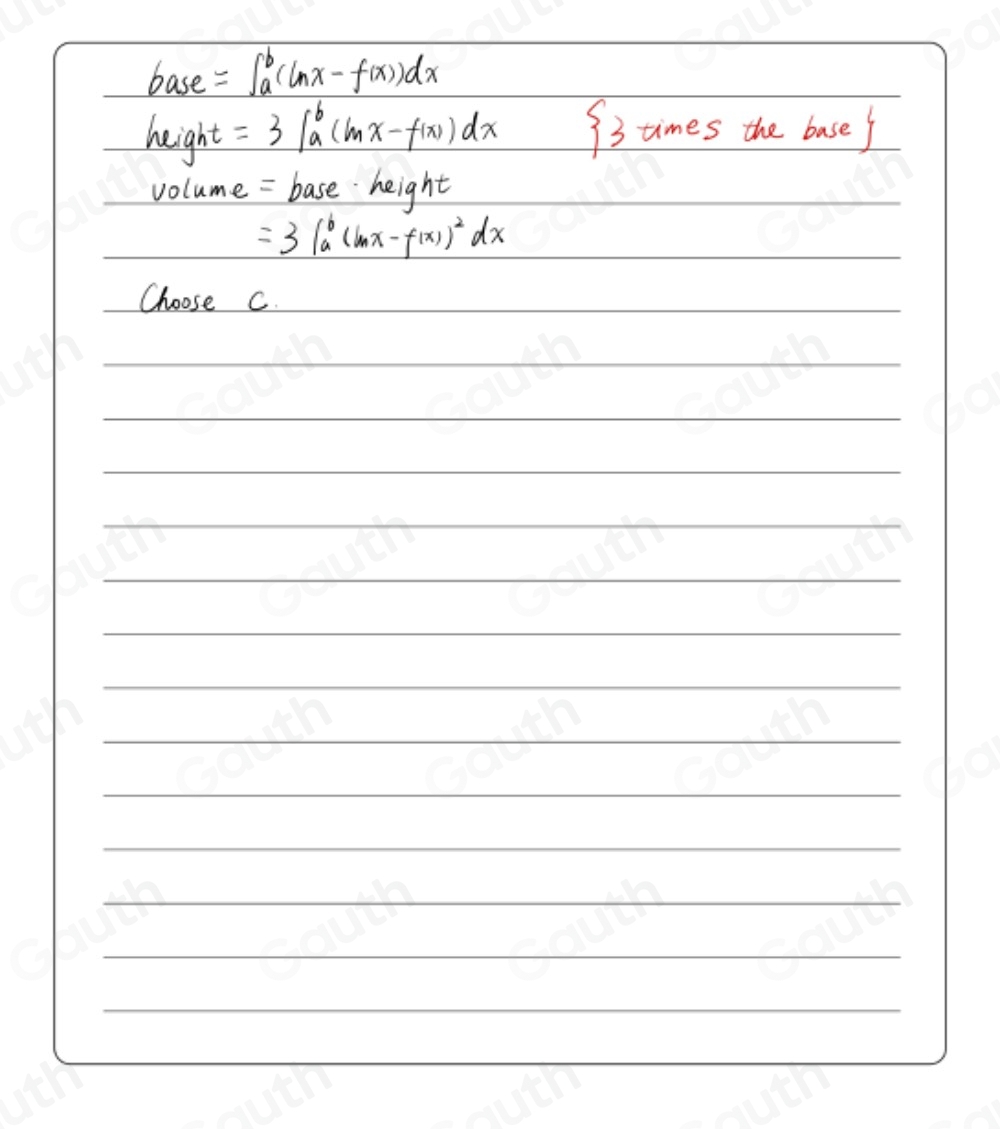 base = ∫ₐᵇ (lnx - f(x))dx
height = 3 ∫ₐᵇ (lnx - f(x)) dx {3 times the base}
volume = base · height
= 3 ∫ₐᵇ (lnx - f(x))² dx
Choose C.
Gauth